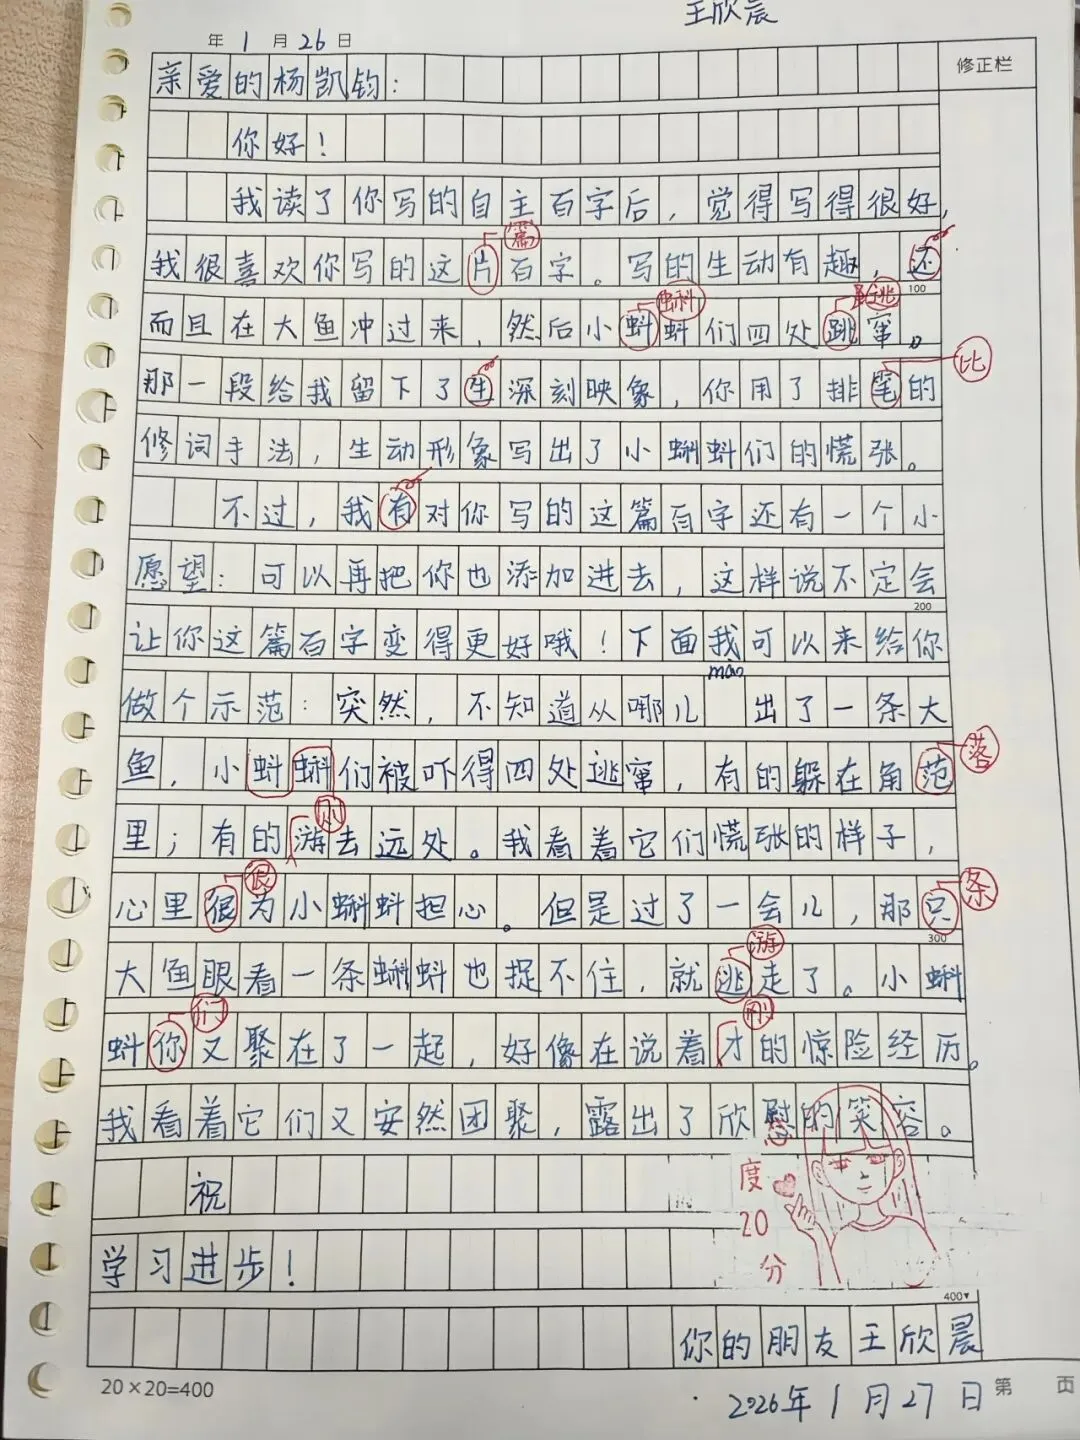 王欣晨
年 1 月 26 日
修正栏
亲爱的杨凯钧：
你好！
我读了你写的自主百字后，觉得写得很好，
篇
我很喜欢你写的这片百字。写的生动有趣，还
100
蝌 逃
而且在大鱼冲过来，然后小蚪蚪们四处跳窜。
比
那一段给我留下了生深刻映象，你用了排笔的
修词手法，生动形象写出了小蝌蚪们的慌张。
不过，我有对你写的这篇百字还有一个小
愿望：可以再把你也添加进去，这样说不定会
200
让你这篇百字变得更好哦！下面我可以来给你
做个示范：突然，不知道从哪儿 出了一条大
落
鱼，小蚪蝌们被吓得四处逃窜，有的躲在角范
则
里；有的游去远处。我看着它们慌张的样子，
很 条
心里很为小蝌蚪担心。但是过了一会儿，那只
300
游
大鱼眼看一条蝌蚪也捉不住，就逃走了。小蝌
们 刚
蚪你又聚在了一起，好像在说着才的惊险经历。
我看着它们又安然团聚，露出了欣慰的笑容。
度
祝
20
分
学习进步！
400▼
你的朋友王欣晨
20×20=400
第 页
2026年1月27日